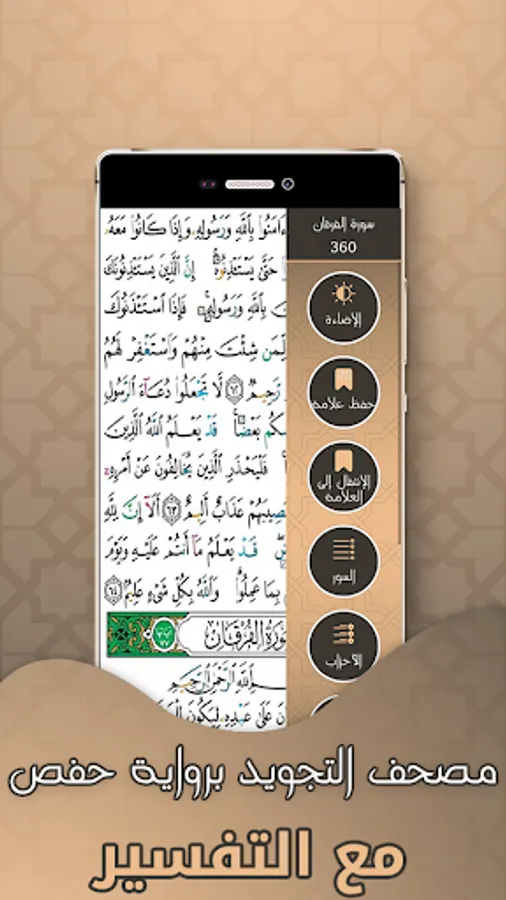 سورة الفرقان
360
الإضاءة
حفظ علامة
الإنتقال إلى
العلامة
السور
الأحزاب
ءَامَنُوا۟ بِٱللَّهِ وَرَسُولِهِۦ وَإِذَا كَانُوا۟ مَعَهُۥ
حَتَّىٰ يَسْتَـْٔذِنُوهُ ۚ إِنَّ ٱلَّذِينَ يَسْتَـْٔذِنُونَكَ
بِٱللَّهِ وَرَسُولِهِۦ ۚ فَإِذَا ٱسْتَـْٔذَنُوكَ
لِّمَن شِئْتَ مِنْهُمْ وَٱسْتَغْفِرْ لَهُمُ
رَّحِيمٌ ٦٢ لَّا تَجْعَلُوا۟ دُعَآءَ ٱلرَّسُولِ
كُم بَعْضًا ۚ قَدْ يَعْلَمُ ٱللَّهُ ٱلَّذِينَ
فَلْيَحْذَرِ ٱلَّذِينَ يُخَالِفُونَ عَنْ أَمْرِهِۦٓ
صِيبَهُمْ عَذَابٌ أَلِيمٌ ٦٣ أَلَآ إِنَّ لِلَّهِ
قَدْ يَعْلَمُ مَآ أَنتُمْ عَلَيْهِ وَيَوْمَ
بِمَا عَمِلُوا۟ ۗ وَٱللَّهُ بِكُلِّ شَىْءٍ عَلِيمٌۢ ٦٤
سُورَةُ الفُرْقَانِ
ٱللَّهِ ٱلرَّحْمَٰنِ ٱلرَّحِيمِ
عَلَىٰ عَبْدِهِۦ لِيَكُونَ
مصحف التجويد برواية حفص
مع التفسير